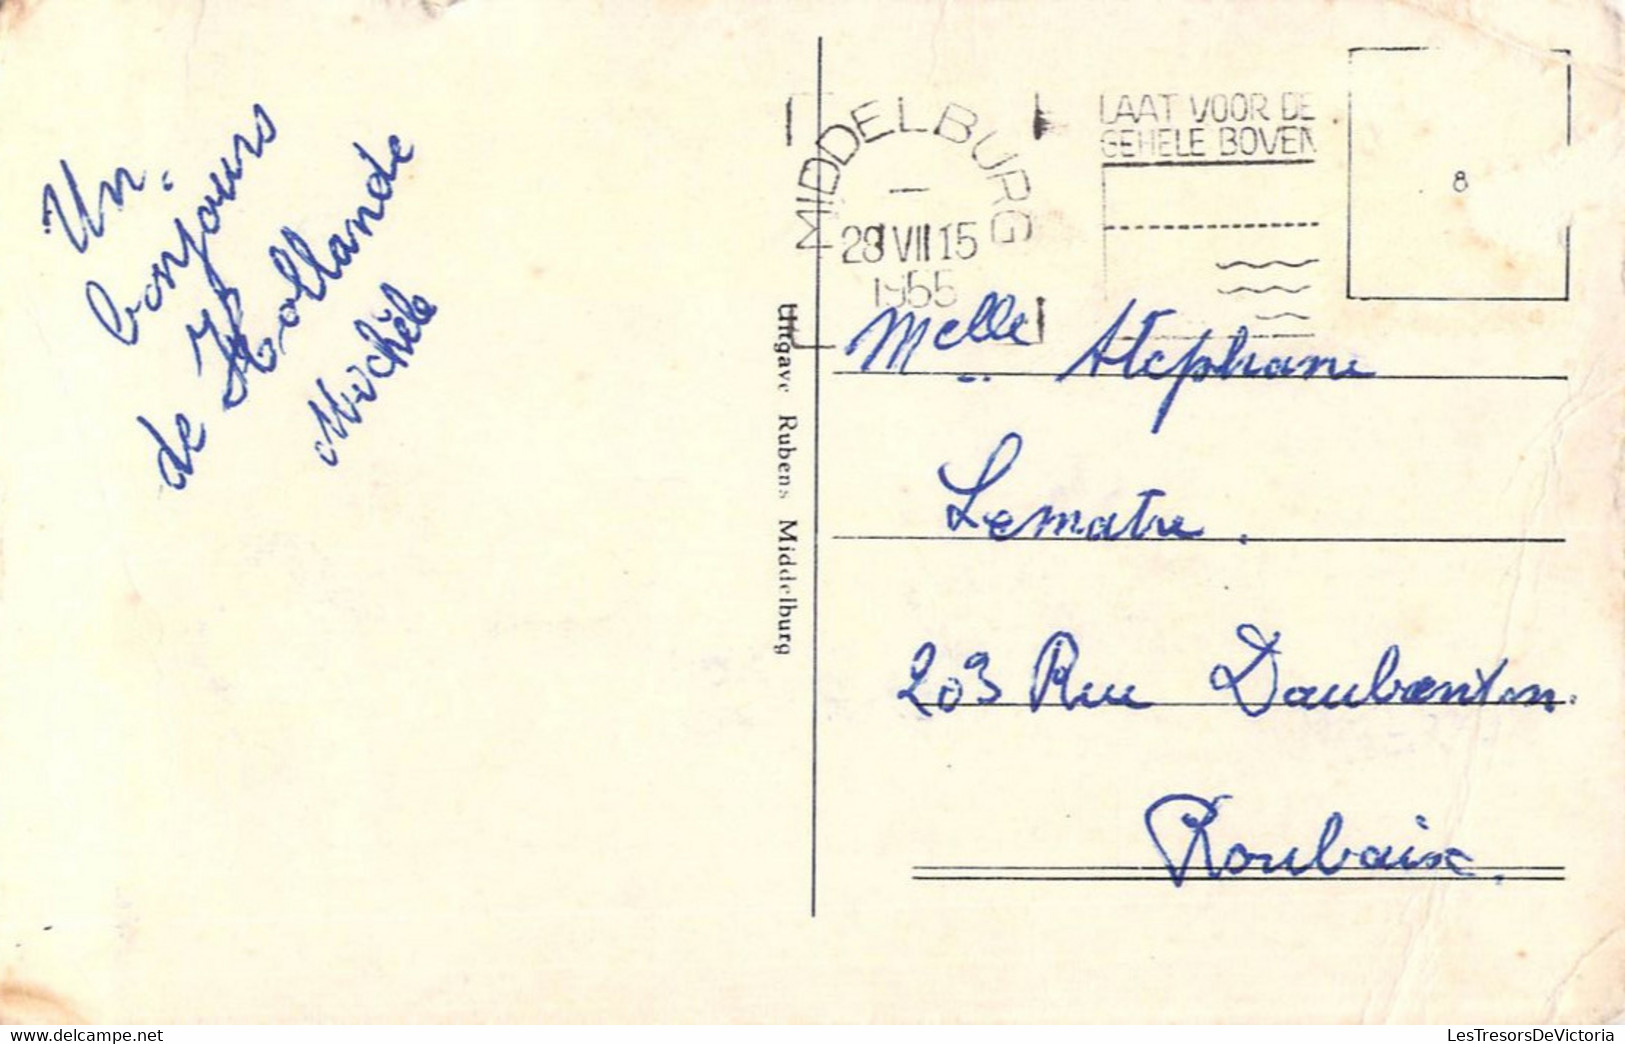 Un.
bonjours
de Hollande
Michèle
Uitgave Rubens Middelburg
MIDDELBURG
28 VII 15
1955
LAAT VOOR DE
GEHELE BOVEN
8
Melle Stephane
Lematre.
203 Rue Daubenton.
Roubaix.
delcampe.net
LesTresorsDeVictoria